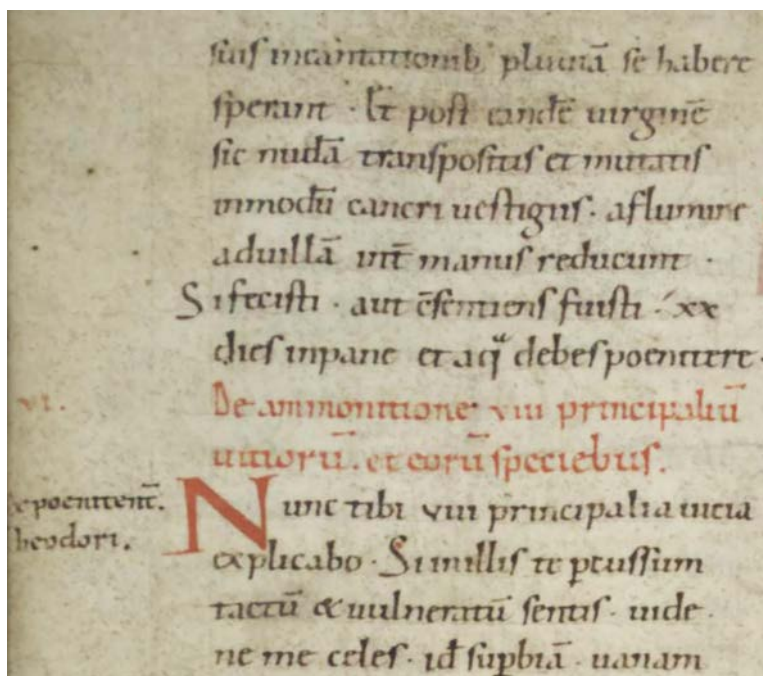 suis incantationib; pluuiā se habere
sperant · Et post eandē uirginē
sic nudā transpositis et mutatis
inmodū cancri uestigiis · aflumine
aduillā int̄ manus reducunt ·
Sifecisti · aut c̄sentiens fuisti · xx
dies inpane et aq debes poenitere ·
VI.
De ammonitione viii principaliū
uitiorū. et eorū speciebus.
poenitent̄.
heodori.
Nunc tibi viii principalia uicia
explicabo · Si in illis te pcussum
tactū & uulneratū sentis · uide
ne me celes · id supbiā · uanam